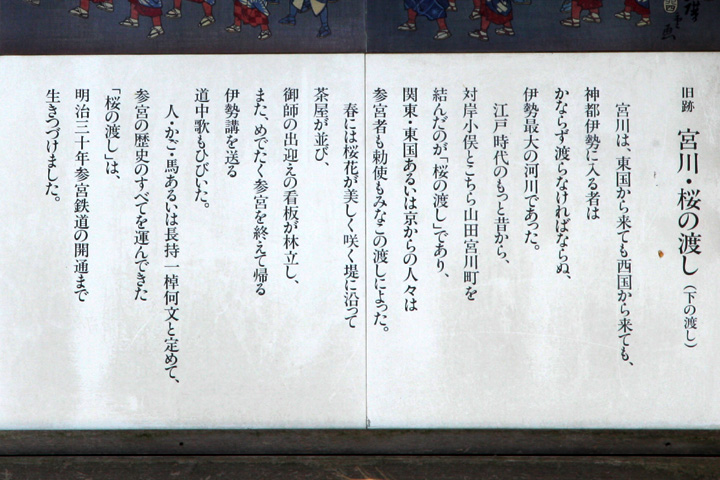 旧跡 宮川・桜の渡し（下の渡し）
宮川は、東国から来ても西国から来ても、
神都伊勢に入る者は
かならず渡らなければならぬ、
伊勢最大の河川であった。
江戸時代のもっと昔から、
対岸小俣とこちら山田宮川町を
結んだのが「桜の渡し」であり、
関東・東国あるいは京からの人々は
参宮者も勅使もみなこの渡しによった。
春には桜花が美しく咲く堤に沿って
茶屋が並び、
御師の出迎えの看板が林立し、
また、めでたく参宮を終えて帰る
伊勢講を送る
道中歌もひびいた。
人・かご・馬あるいは長持一棹何文と定めて、
参宮の歴史のすべてを運んできた
「桜の渡し」は、
明治三十年参宮鉄道の開通まで
生きつづけました。